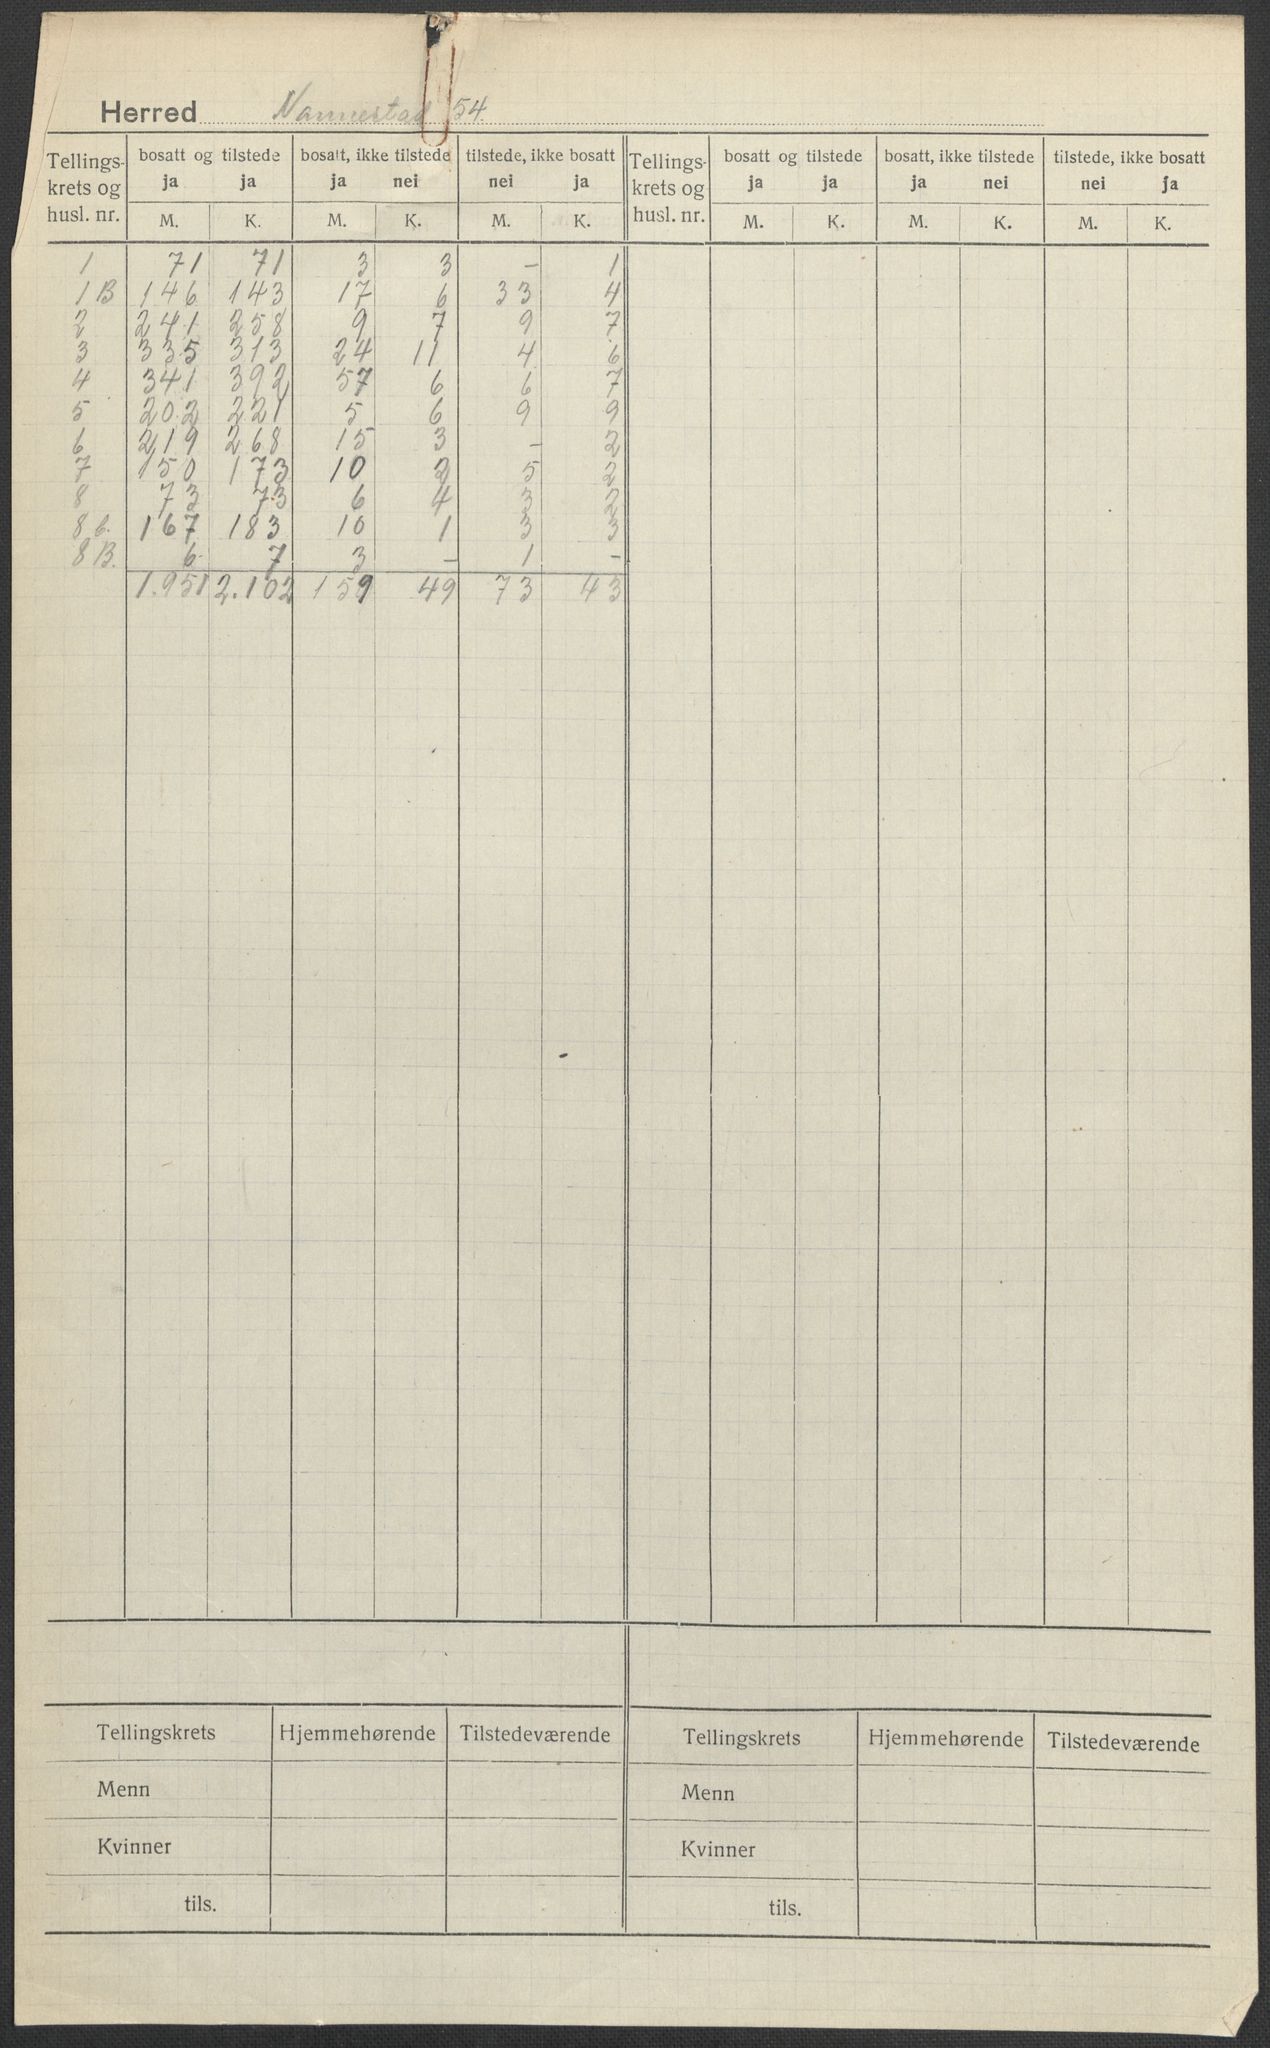 Herred Nannestad 54
Tellings- krets og husl. nr. | bosatt og tilstede ja ja | bosatt, ikke tilstede ja nei | tilstede, ikke bosatt nei ja | Tellings- krets og husl. nr. | bosatt og tilstede ja ja | bosatt, ikke tilstede ja nei | tilstede, ikke bosatt nei ja
M. K. M. K. M. K. M. K. M. K. M. K.
1 71 71 3 3 – 1
1 B 146 143 17 6 33 4
2 241 258 9 7 9 7
3 335 313 24 11 4 6
4 341 392 57 6 6 7
5 202 221 5 6 9 9
6 219 268 15 3 – 2
7 150 173 10 2 5 2
8 73 73 6 4 3 2
8 b. 167 183 10 1 3 3
8 B. 6 7 3 – 1 –
1.951 2.102 159 49 73 43
Tellingskrets Hjemmehørende Tilstedeværende Tellingskrets Hjemmehørende Tilstedeværende
Menn Menn
Kvinner Kvinner
tils. tils.